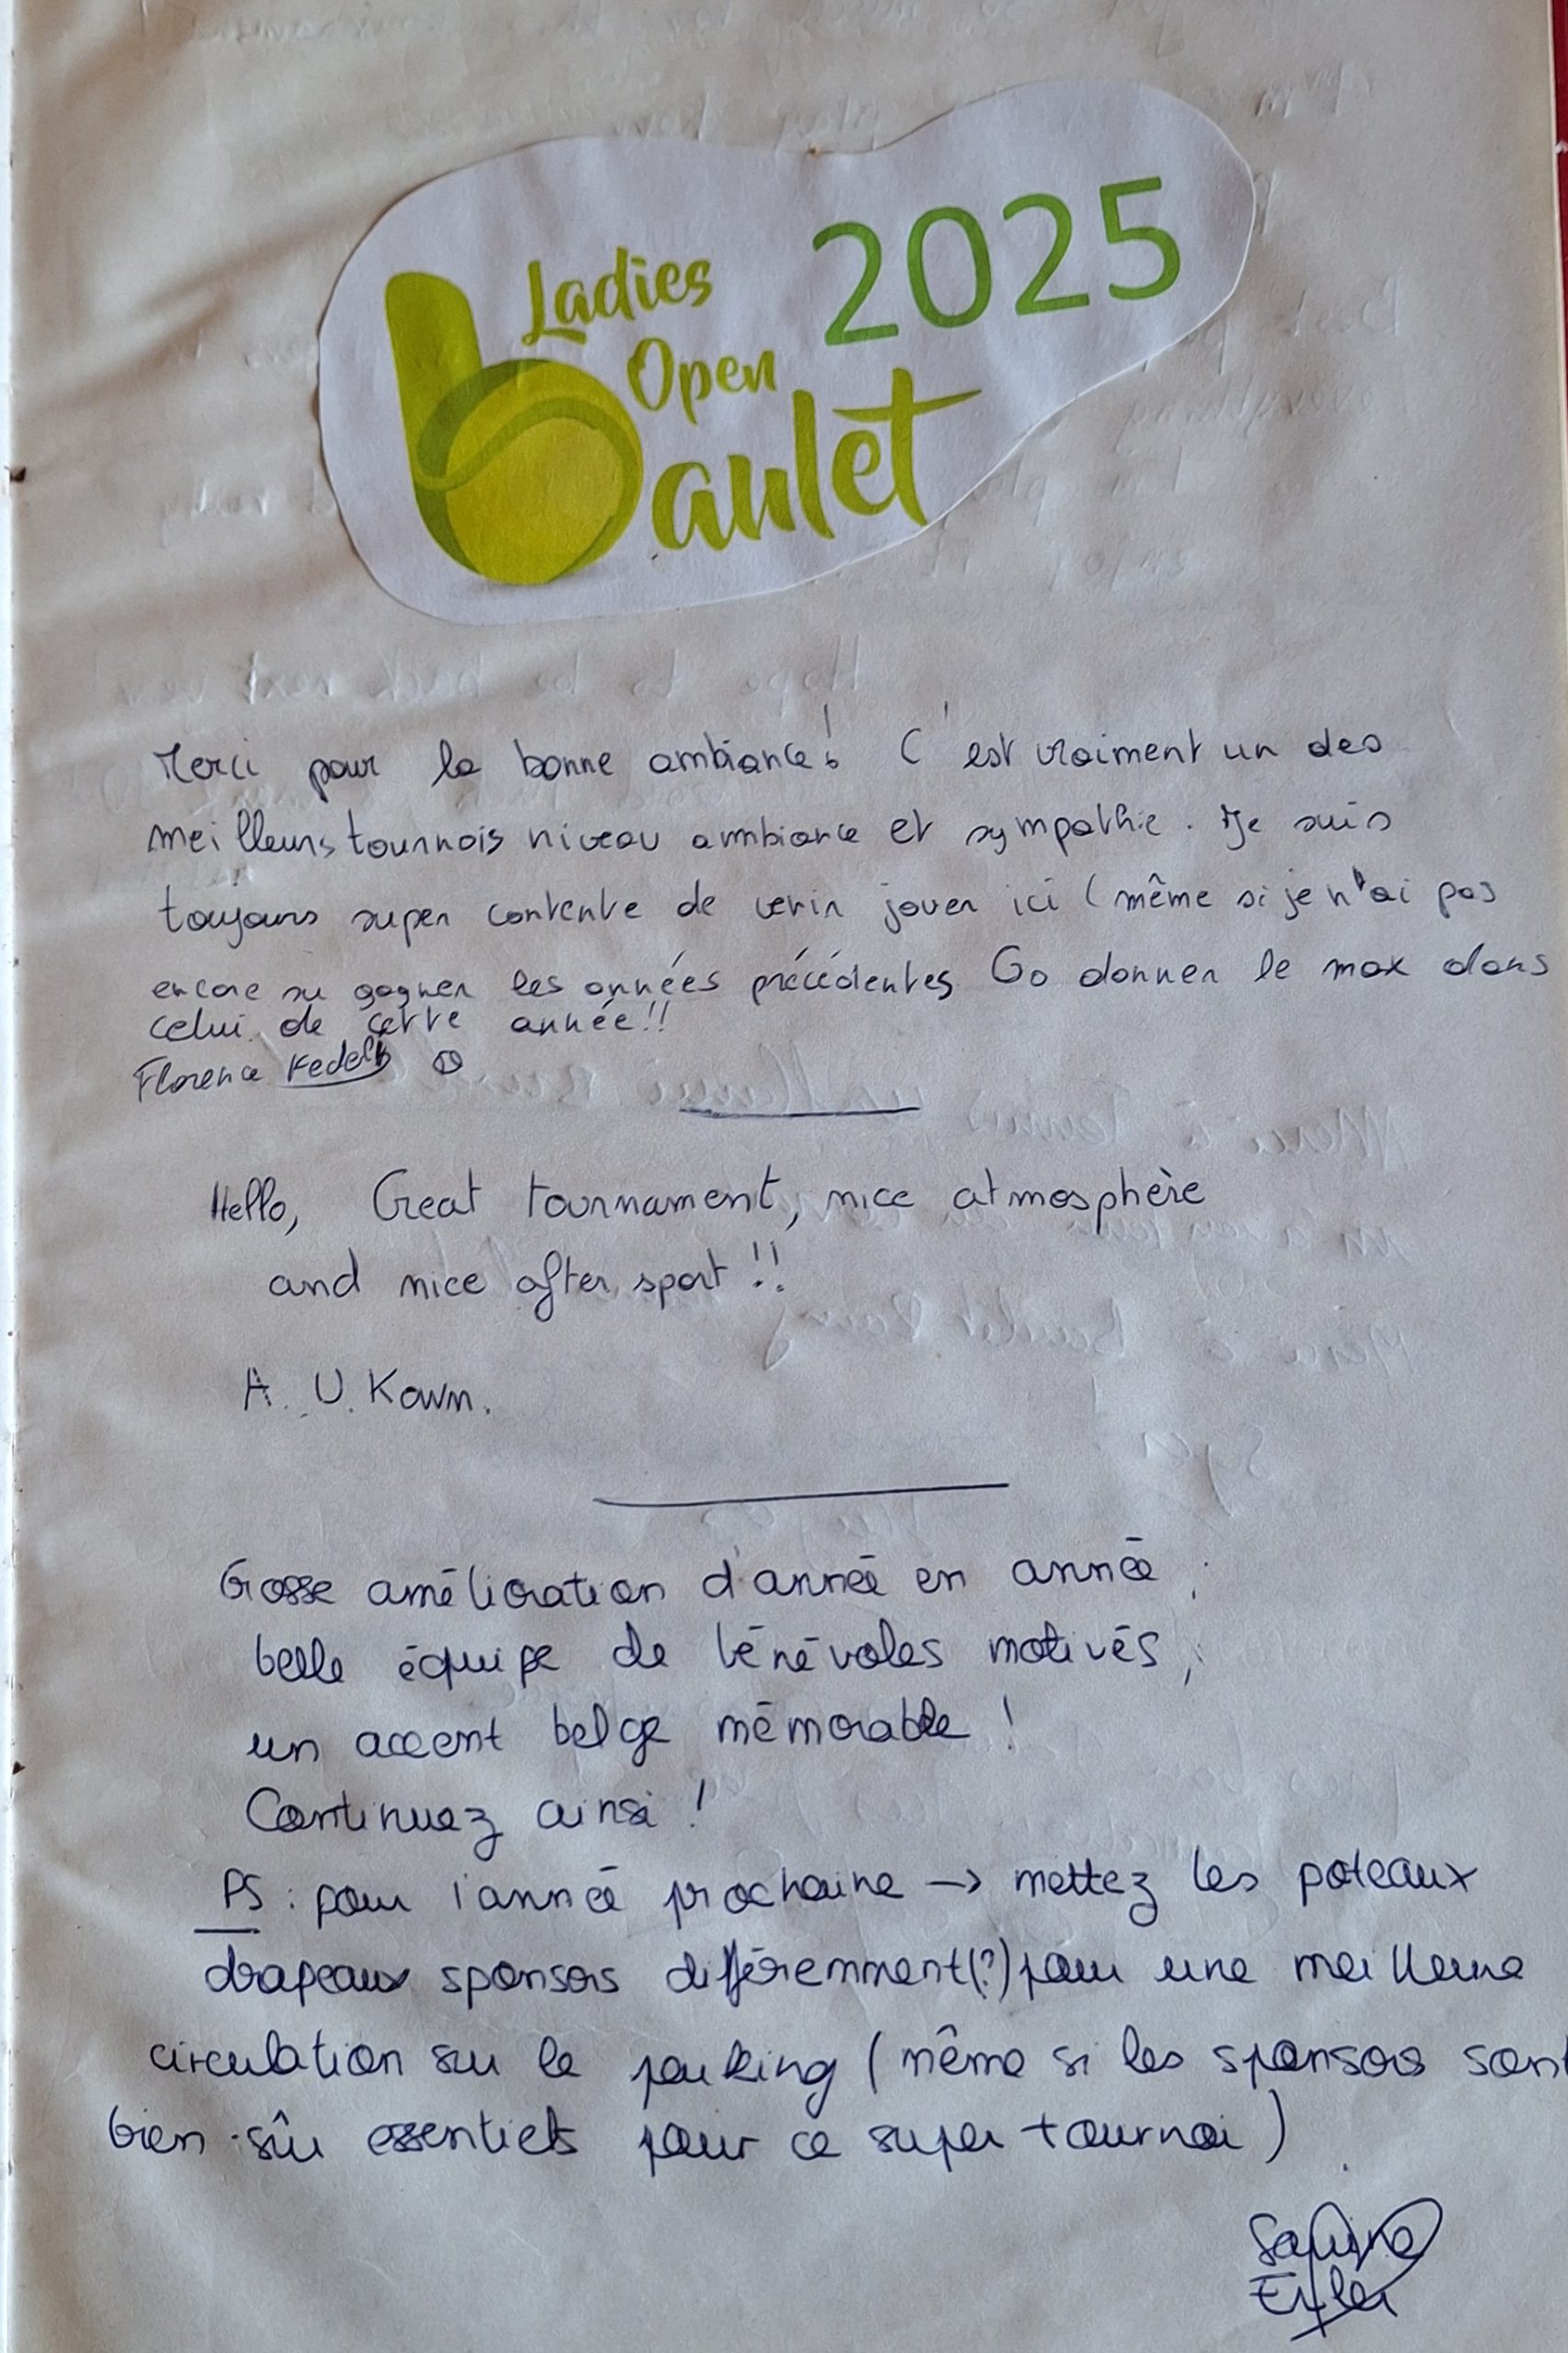 Ladies
Open
baulet
2025
Merci pour la bonne ambiance! C'est vraiment un des
meilleurs tournois niveau ambiance et sympathie. Je suis
toujours super contente de venir jouer ici (même si je n'ai pas
encore su gagner les années précédentes. Go donner le max dans
celui de cette année!!
Florence
Hello, Great tournament, nice atmosphère
and nice after sport !!
A. U. Kawn.
Grosse amélioration d'année en année ;
belle équipe de bénévoles motivés ;
un accent belge mémorable !
Continuez ainsi !
PS : pour l'année prochaine → mettez les poteaux
drapeaux sponsors différemment(?) pour une meilleure
circulation sur le parking (même si les sponsors sont
bien sûr essentiels pour ce super tournoi)